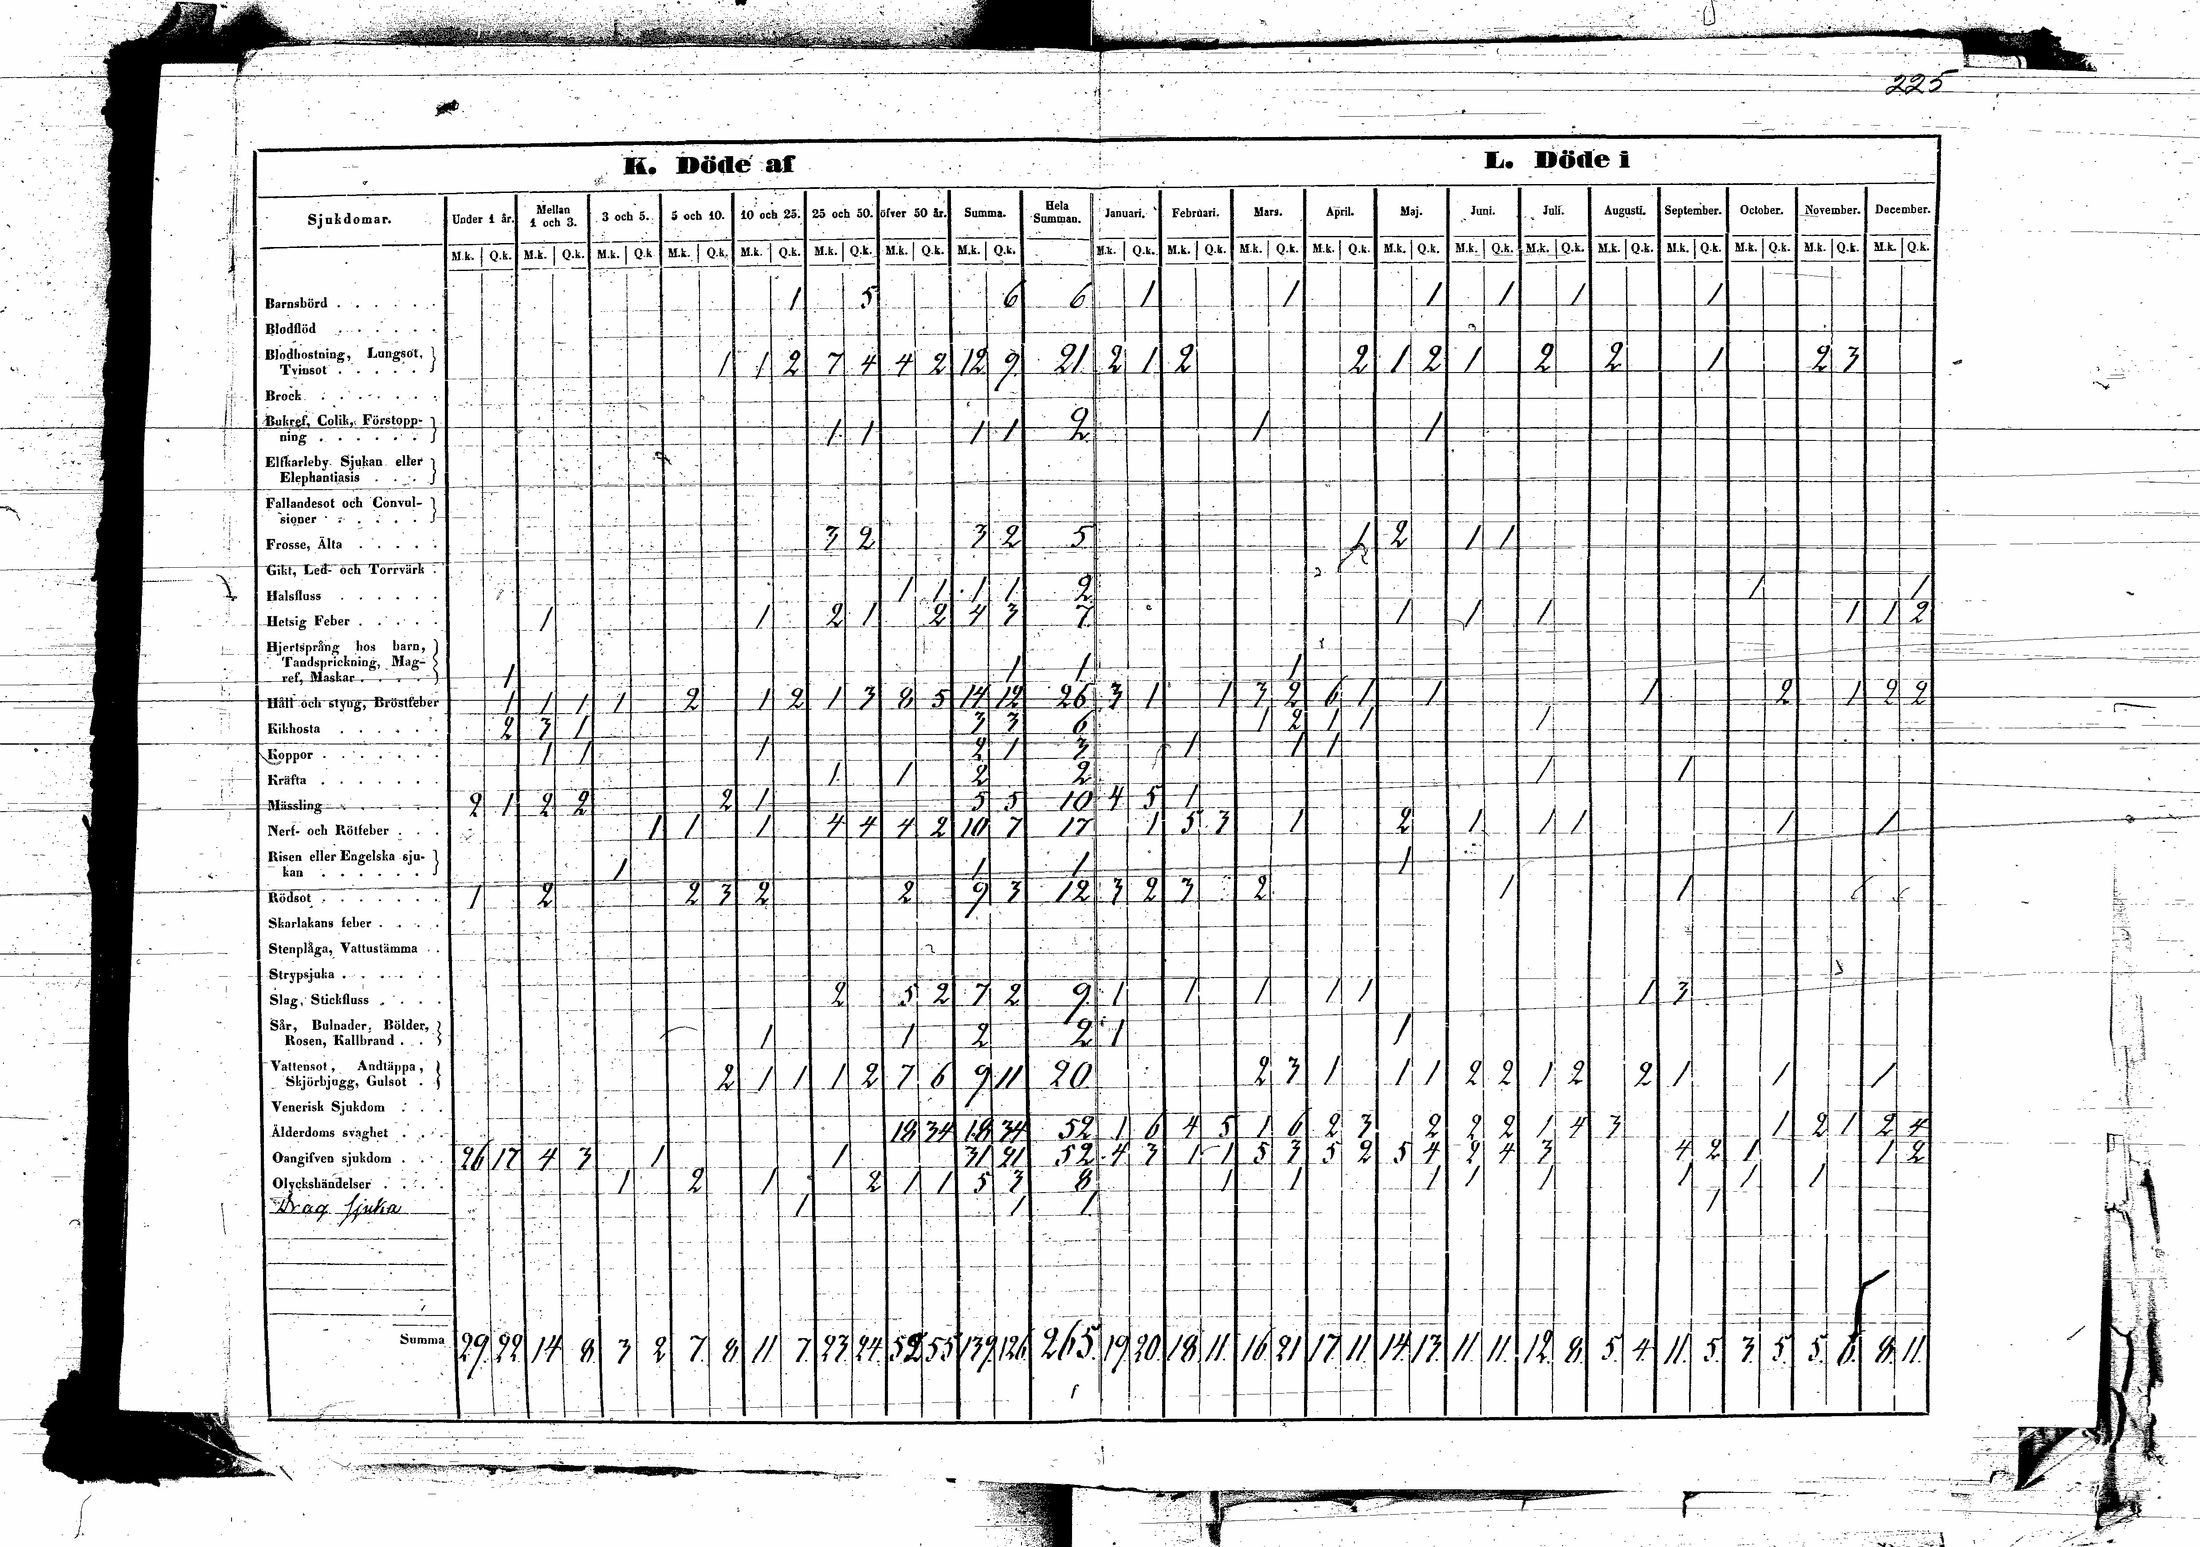 225
K. Döde af L. Döde i
Sjukdomar. Under 1 år. Mellan 1 och 3. 3 och 5. 5 och 10. 10 och 25. 25 och 50. öfver 50 år. Summa. Hela Summan. Januari. Februari. Mars. April. Maj. Juni. Juli. Augusti. September. October. November. December.
M.k. Q.k. M.k. Q.k. M.k. Q.k M.k. Q.k. M.k. Q.k. M.k. Q.k. M.k. Q.k. M.k. Q.k. M.k. Q.k. M.k. Q.k. M.k. Q.k. M.k. Q.k. M.k. Q.k. M.k. Q.k. M.k. Q.k. M.k. Q.k. M.k. Q.k. M.k. Q.k. M.k. Q.k. M.k. Q.k.
Barnsbörd 1 5 6 6 1 1 1 1 1 1
Blodflöd
Blodhostning, Lungsot,
Tvinsot 1 1 2 7 4 4 2 12 9 21 2 1 2 2 1 2 1 2 2 1 2 3
Brock
Bukref, Colik, Förstopp-
ning 1 1 1 1 2 1 1
Elfkarleby Sjukan eller
Elephantiasis
Fallandesot och Convul-
sioner
Frosse, Älta 3 2 3 2 5 1 2 1 1
Gikt, Led- och Torrvärk
Halsfluss 1 1 1 1 2 1 1
Hetsig Feber 1 1 2 1 2 4 3 7 1 1 1 1 1 2
Hjertsprång hos barn,
Tandsprickning, Mag-
ref, Maskar 1 1 1 1
Håll och styng, Bröstfeber 1 1 1 1 2 1 2 1 3 8 5 14 12 26 3 1 1 3 2 6 1 1 1 2 1 2 2
Kikhosta 2 3 1 3 3 6 1 2 1 1 1
Koppor 1 1 1 2 1 3 1 1 1
Kräfta 1 1 2 2 1 1
Mässling 2 1 2 2 2 1 5 5 10 4 5 1
Nerf- och Rötfeber 1 1 1 4 4 4 2 10 7 17 1 5 3 1 2 1 1 1 1 1
Risen eller Engelska sju-
kan 1 1 1 1
Rödsot 1 2 2 3 2 2 9 3 12 3 2 3 2 1 1
Skarlakans feber
Stenplåga, Vattustämma
Strypsjuka
Slag, Stickfluss 2 5 2 7 2 9 1 1 1 1 1 1 3
Sår, Bulnader, Bölder,
Rosen, Kallbrand 1 1 2 2 1 1
Vattensot, Andtäppa,
Skjörbjugg, Gulsot 2 1 1 1 2 7 6 9 11 20 2 3 1 1 1 2 2 1 2 2 1 1 1
Venerisk Sjukdom
Ålderdoms svaghet 18 34 18 34 52 1 6 4 5 1 6 2 3 2 2 2 1 4 3 1 2 1 2 4
Oangifven sjukdom 26 17 4 3 1 1 31 21 52 4 3 1 1 5 3 5 2 5 4 2 4 3 4 2 1 1 2
Olyckshändelser 1 2 1 2 1 1 5 3 8 1 1 1 1 1 1 1 1
Drag sjuka 1 1 1 1
Summa 29 22 14 8 3 2 7 8 11 7 23 24 52 55 139 126 265 19 20 18 11 16 21 17 11 14 13 11 11 12 8 5 4 11 5 3 5 5 6 8 11